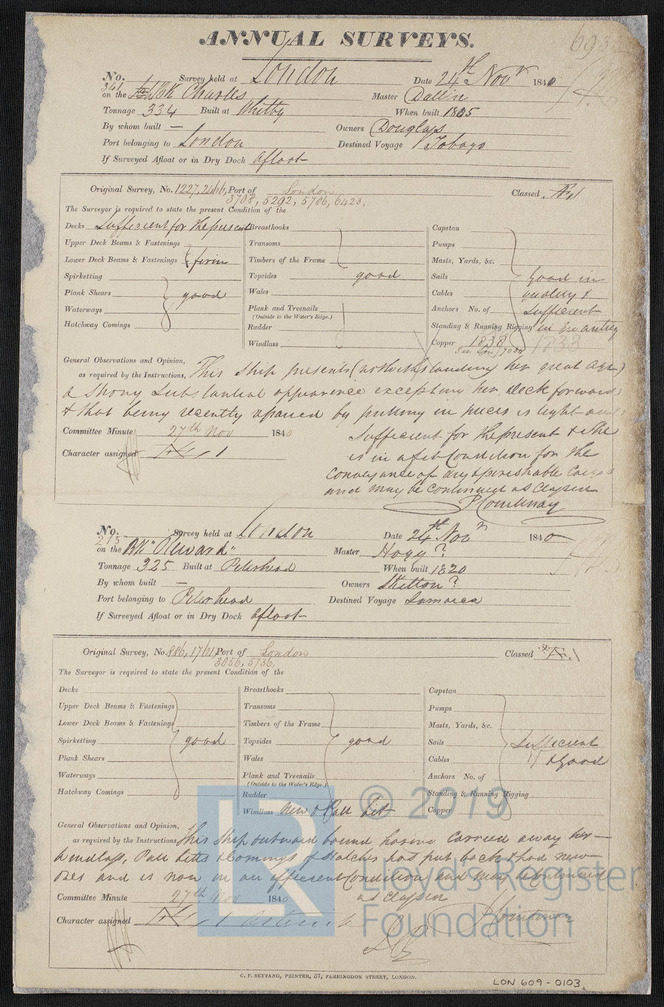 ANNUAL SURVEYS.
No. 341 Survey held at London Date 24th Novr 1840
on the Bk Charles Master Dallin
Tonnage 334 Built at Whitby When built 1805
By whom built — Owners Douglas
Port belonging to London Destined Voyage Tobago
If Surveyed Afloat or in Dry Dock afloat
Original Survey, No. 1227, Port of London Classed Æ1
3708, 5292, 5706, 6423,
The Surveyor is required to state the present Condition of the
Decks Sufficient for the present Breasthooks Capstan
Upper Deck Beams & Fastenings Transoms Pumps
Lower Deck Beams & Fastenings firm Timbers of the Frame Masts, Yards, &c.
Spirketting Topsides good Sails good in
Plank Shears good Wales Cables quality &
Waterways Plank and Treenails Anchors No. of sufficient
(Outside to the Water's Edge.)
Hatchway Comings Rudder Standing & Running Rigging in quantity
Windlass Copper 1838
General Observations and Opinion,
as required by the Instructions, This ship presents (notwithstanding her great age)
a strong substantial appearance excepting her deck forward
& that being recently repaired by putting in pieces is tight and
Committee Minute 27th Nov 1840 sufficient for the present & she
Character assigned is in a fit Condition for the
Conveyance of dry & perishable Cargo
and may be continued as Classed
P Courtenay
No. 215 Survey held at London Date 24th Novr 1840
on the Bk "Reward" Master Hogg?
Tonnage 325 Built at Peterhead When built 1820
By whom built — Owners
Port belonging to Peterhead Destined Voyage Jamaica
If Surveyed Afloat or in Dry Dock afloat
Original Survey, No. 886, 1761 Port of London Classed Æ1
3056, 5736,
The Surveyor is required to state the present Condition of the
Decks Breasthooks Capstan
Upper Deck Beams & Fastenings Transoms Pumps
Lower Deck Beams & Fastenings Timbers of the Frame Masts, Yards, &c.
Spirketting good Topsides good Sails Sufficient
Plank Shears Wales Cables & Good
Waterways Plank and Treenails Anchors No. of
(Outside to the Water's Edge.)
Hatchway Comings Rudder Standing & Running Rigging
Windlass New & Pall bit Copper
General Observations and Opinion,
as required by the Instructions, This ship outward bound having carried away her
windlass, Pall bitts & Comings of Hatches has put back & had new
ones and is now in an efficient Condition and may be continued
Committee Minute 27th Nov 1840 as Classed
Character assigned
C. F. SEYFANG, PRINTER, 57, FARRINGDON STREET, LONDON.
LON 609-0103
LR
© 2019
Lloyd's Register
Foundation